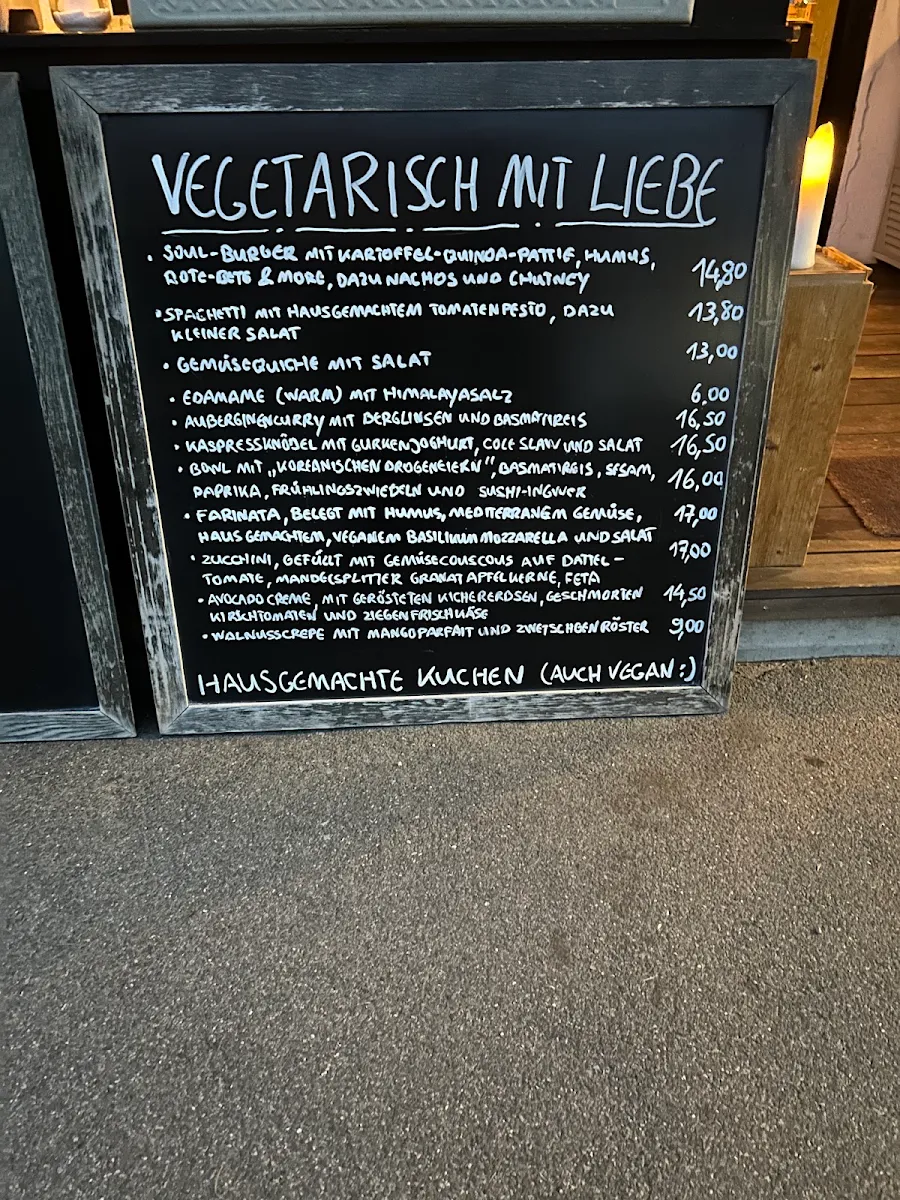 VEGETARISCH MIT LIEBE
• SOUL-BURGER MIT KARTOFFEL-QUINOA-PATTIE, HUMUS, 14,80
ROTE-BETE & MORE, DAZU NACHOS UND CHUTNEY
• SPAGHETTI MIT HAUSGEMACHTEM TOMATENPESTO, DAZU 13,80
KLEINER SALAT
• GEMÜSEQUICHE MIT SALAT 13,00
• EDAMAME (WARM) MIT HIMALAYASALZ 6,00
• AUBERGINENCURRY MIT BERGLINSEN UND BASMATIREIS 16,50
• KASPRESSKNÖDEL MIT GURKENJOGHURT, COLE SLAW UND SALAT 16,50
• BOWL MIT „KOREANISCHEN DROGENEIERN", BASMATIREIS, SESAM, 16,00
PAPRIKA, FRÜHLINGSZWIEBELN UND SUSHI-INGWER
• FARINATA, BELEGT MIT HUMUS, MEDITERRANEM GEMÜSE, 17,00
HAUSGEMACHTEM, VEGANEM BASILIKUM MOZZARELLA UND SALAT
• ZUCCHINI, GEFÜLLT MIT GEMÜSECOUSCOUS AUF DATTEL- 17,00
TOMATE, MANDELSPLITTER GRANATAPFELKERNE, FETA
• AVOCADO CREME MIT GERÖSTETEN KICHERERBSEN, GESCHMORTEN 14,50
KIRSCHTOMATEN UND ZIEGENFRISCHKÄSE
• WALNUSSCREPE MIT MANGOPARFAIT UND ZWETSCHGENRÖSTER 9,00
HAUSGEMACHTE KUCHEN (AUCH VEGAN :)